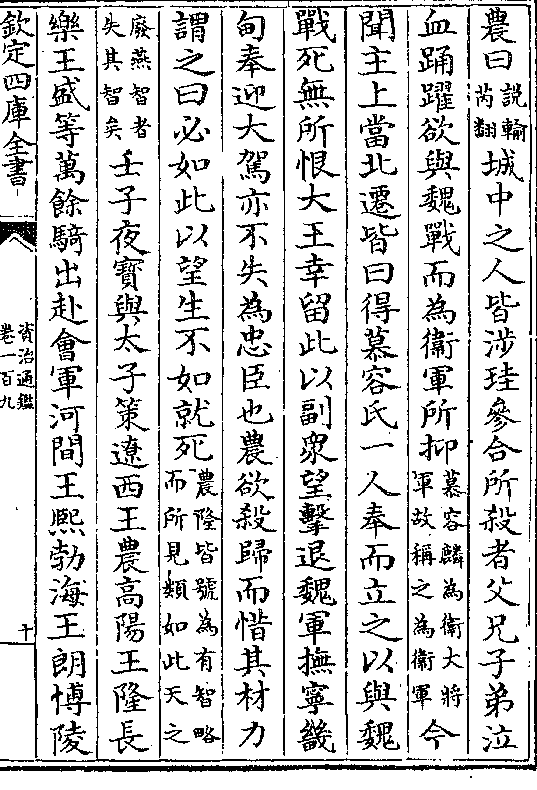 農曰説輸芮翻城中之人皆涉珪參合所殺者父兄子弟泣
血踊躍欲與魏戰而為衞軍所抑慕容麟為衛大將軍故稱之為衞軍今
聞主上當北遷皆曰得慕容氏一人奉而立之以與魏
戰死無所恨大王幸留此以副衆望擊退魏軍撫寧畿
甸奉迎大駕亦不失為忠臣也農欲殺歸而惜其材力
謂之曰必如此以望生不如就死農隆皆號為有智略而所見類如此天之
廢燕智者失其智矣壬子夜寶與太子策遼西王農高陽王隆長
樂王盛等萬餘騎出赴會軍河間王熙勃海王朗博陵
欽定四庫全書
資治通鑑
卷一百九
十